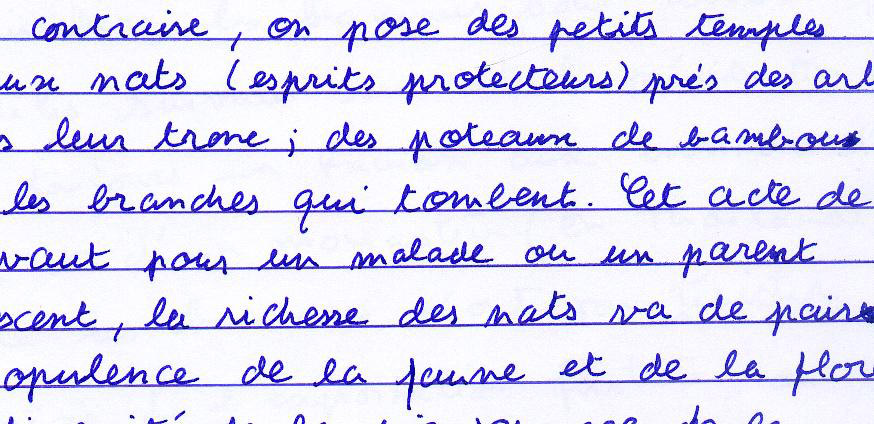 contraire, on pose des petits temples
aux nats (esprits protecteurs) prés des arb
s leur tronc ; des poteaux de bambous
les branches qui tombent. Cet acte de
vaut pour un malade ou un parent
scent, la richesse des nats va de pair
opulence de la faune et de la flor